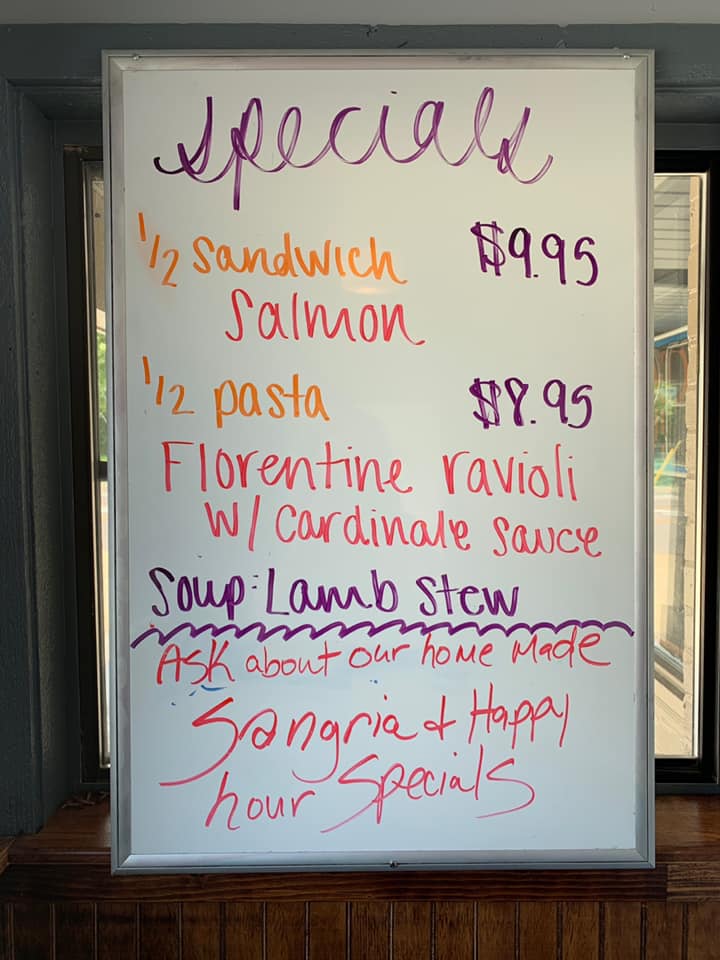 Specials
1/2 Sandwich $9.95
Salmon
1/2 pasta $8.95
Florentine ravioli
w/ Cardinale Sauce
Soup: Lamb Stew
Ask about our home Made
Sangria & Happy
hour Specials